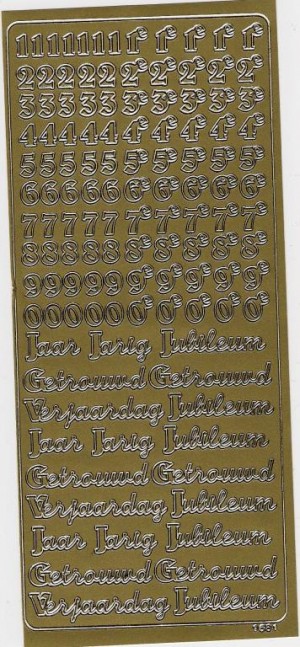 1 1 1 1 1 1 1e 1e 1e 1e 1e
2 2 2 2 2 2e 2e 2e 2e 2e
3 3 3 3 3 3e 3e 3e 3e 3e
4 4 4 4 4 4e 4e 4e 4e 4e
5 5 5 5 5 5e 5e 5e 5e 5e
6 6 6 6 6 6e 6e 6e 6e 6e
7 7 7 7 7 7e 7e 7e 7e 7e
8 8 8 8 8 8e 8e 8e 8e 8e
9 9 9 9 9 9e 9e 9e 9e 9e
0 0 0 0 0 0e 0e 0e 0e 0e
Jaar Jarig Jubileum
Getrouwd Getrouwd
Verjaardag Jubileum
Jaar Jarig Jubileum
Getrouwd Getrouwd
Verjaardag Jubileum
Jaar Jarig Jubileum
Getrouwd Getrouwd
Verjaardag Jubileum